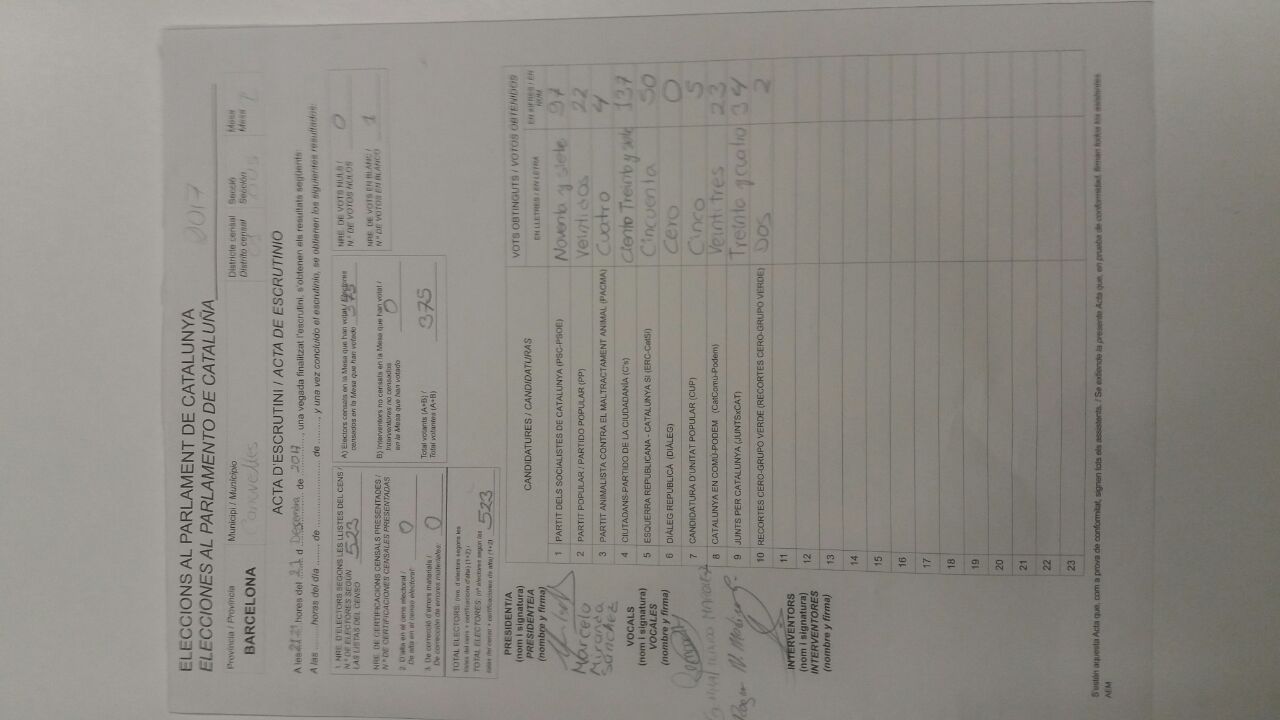 ELECCIONS AL PARLAMENT DE CATALUNYA
ELECCIONES AL PARLAMENTO DE CATALUÑA 2017
Província / Provincia
BARCELONA
Municipi / Municipio
Canovelles
Districte censal
Distrito censal
01
Secció
Sección
Mesa
Mesa
ACTA D'ESCRUTINI / ACTA DE ESCRUTINIO
A les hores del 21 d Desembre de 2017, una vegada finalitzat l'escrutini, s'obtenen els resultats següents:
A las hores del día de de , y una vez concluido el escrutinio, se obtienen los siguientes resultados:
1. NRE. D'ELECTORS SEGONS LES LLISTES DEL CENS /
N.º DE ELECTORES SEGÚN
LAS LISTAS DEL CENSO 523
NRE. DE CERTIFICACIONS CENSALS PRESENTADES /
N.º DE CERTIFICACIONES CENSALES PRESENTADAS
2. D'alta en el cens electoral /
De alta en el censo electoral: 0
3. De correcció d'errors materials /
De corrección de errores materiales: 0
TOTAL ELECTORS: (nre. d'electors segons les
llistes del cens + certificacions d'alta) (1+2) /
TOTAL ELECTORES: (nº electores según las
listas del censo + certificaciones de alta) (1+2) 523
A) Electors censats en la Mesa que han votat / Electores
censados en la Mesa que han votado 375
B) Interventors no censats en la Mesa que han votat /
Interventores no censados
en la Mesa que han votado 0
Total votants (A+B) /
Total votantes (A+B) 375
NRE. DE VOTS NULS /
N.º DE VOTOS NULOS 0
NRE. DE VOTS EN BLANC /
N.º DE VOTOS EN BLANCO 1
PRESIDENT/A
(nom i signatura)
PRESIDENTE/A
(nombre y firma)
Marcelo
Miranda
Sánchez
VOCALS
(nom i signatura)
VOCALES
(nombre y firma)
INTERVENTORS
(nom i signatura)
INTERVENTORES
(nombre y firma)
CANDIDATURES / CANDIDATURAS
VOTS OBTINGUTS / VOTOS OBTENIDOS
EN LLETRES / EN LETRA
EN XIFRES / EN NÚM.
1 PARTIT DELS SOCIALISTES DE CATALUNYA (PSC-PSOE) Noventa y siete 97
2 PARTIT POPULAR / PARTIDO POPULAR (PP) Veintidos 22
3 PARTIT ANIMALISTA CONTRA EL MALTRACTAMENT ANIMAL (PACMA) Cuatro 4
4 CIUTADANS-PARTIDO DE LA CIUDADANÍA (C's) Ciento Treinta y siete 137
5 ESQUERRA REPUBLICANA - CATALUNYA SÍ (ERC-CatSí) Cincuenta 50
6 DIÀLEG REPUBLICÀ (DIÀLEG) Cero 0
7 CANDIDATURA D'UNITAT POPULAR (CUP) Cinco 5
8 CATALUNYA EN COMÚ-PODEM (CatComú-Podem) Veintitres 23
9 JUNTS PER CATALUNYA (JUNTSxCAT) Treinta y cuatro 34
10 RECORTES CERO-GRUPO VERDE (RECORTES CERO-GRUPO VERDE) Dos 2
11
12
13
14
15
16
17
18
19
20
21
22
23
S'estén aquesta Acta que, com a prova de conformitat, signen tots els assistents. / Se extiende la presente Acta que, en prueba de conformidad, firman todos los asistentes
AEM